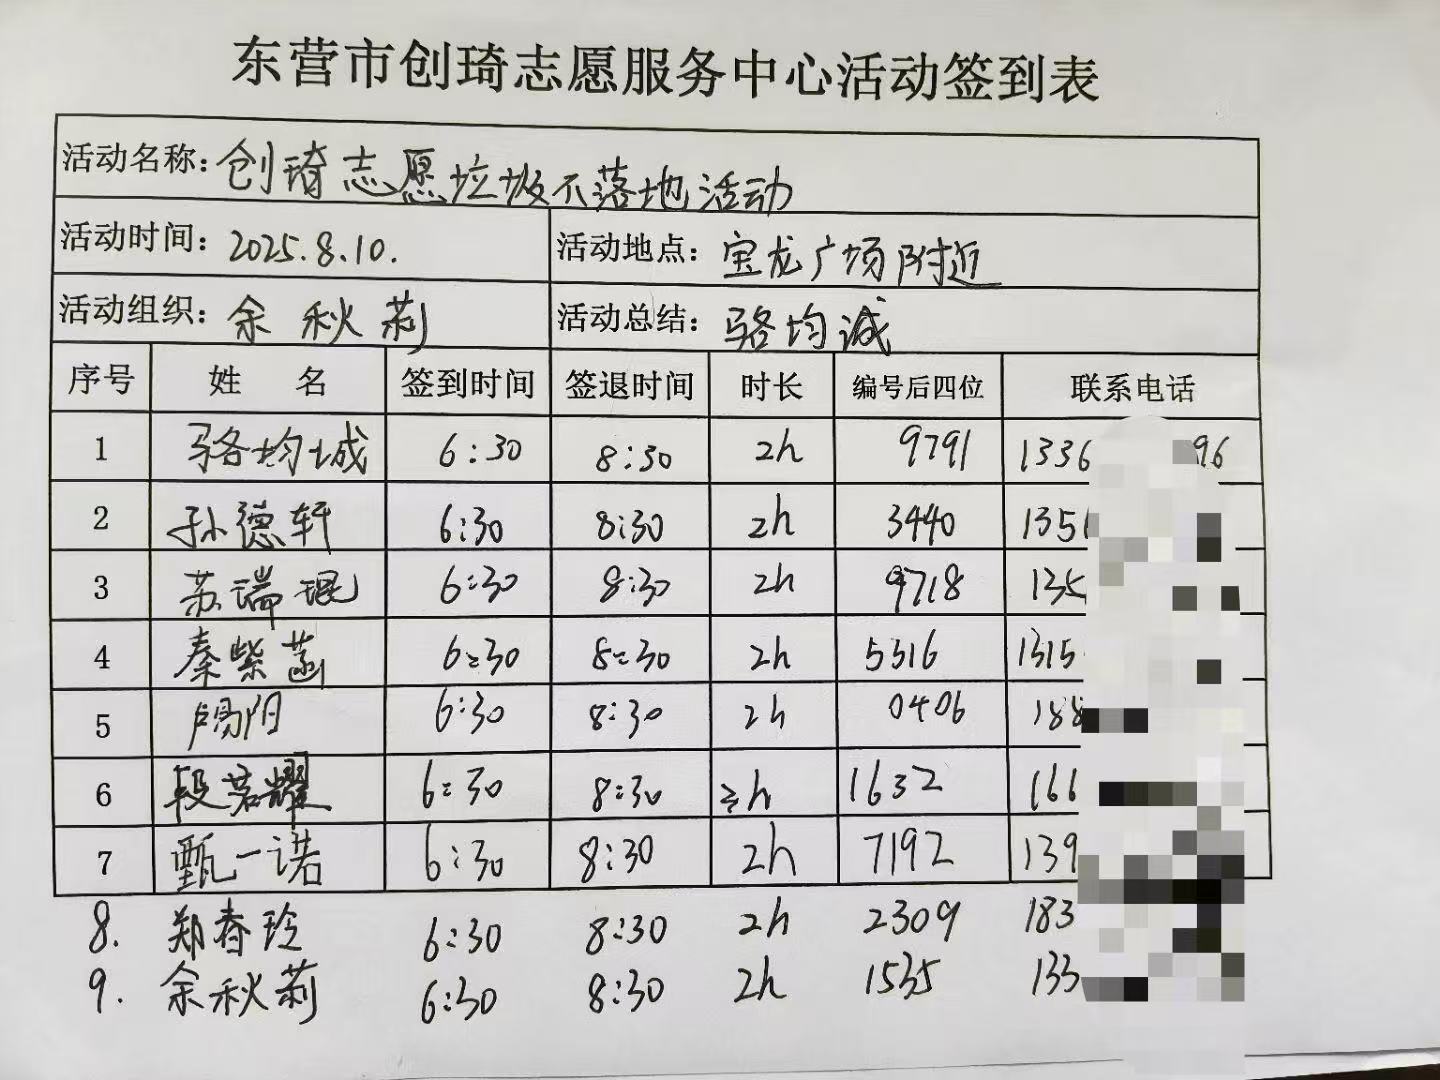 东营市创琦志愿服务中心活动签到表
活动名称：创琦志愿垃圾不落地活动
活动时间：2025.8.10. 活动地点：宝龙广场附近
活动组织：余秋莉 活动总结：骆均诚
序号 姓名 签到时间 签退时间 时长 编号后四位 联系电话
1 骆均城 6:30 8:30 2h 9791 1336 96
2 孙德轩 6:30 8:30 2h 3440 1351
3 苏瑞琨 6:30 8:30 2h 9718 135
4 秦紫菡 6:30 8:30 2h 5316 1315
5 卢易阳 6:30 8:30 2h 0406 188
6 段茗耀 6:30 8:30 2h 1632 166
7 甄一诺 6:30 8:30 2h 7192 139
8. 郑春玲 6:30 8:30 2h 2309 183
9. 余秋莉 6:30 8:30 2h 1535 133